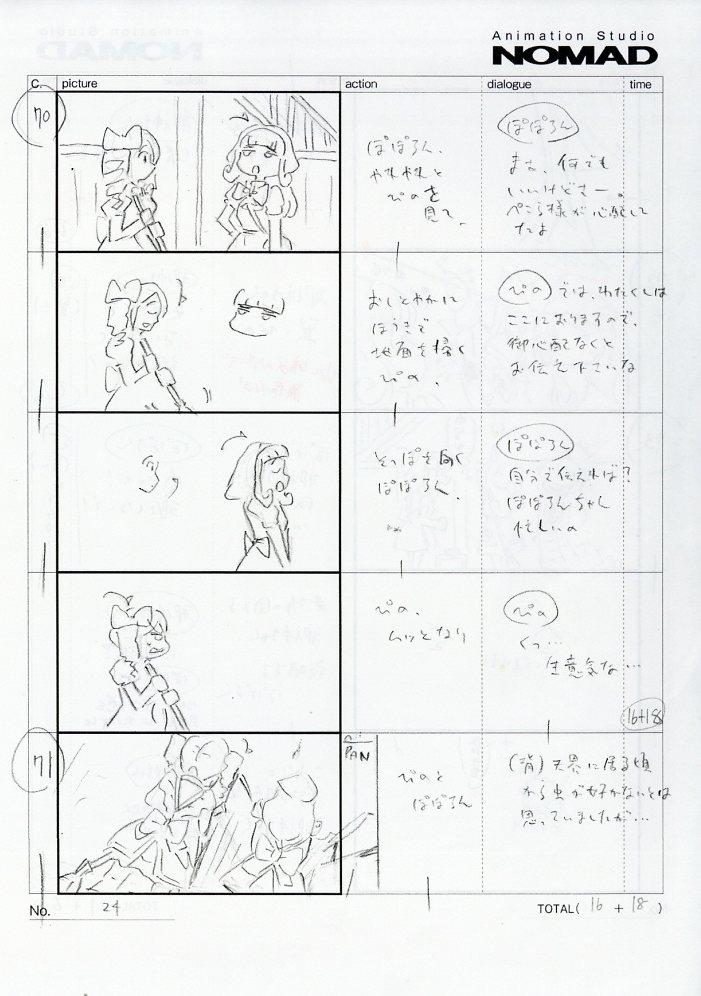 Animation Studio
NOMAD
C. picture action dialogue time
70
ぽぽろん、
やれやれと
ぴのを
見て、
ぽぽろん
まぁ、何でも
いいけどさー。
ぺころ様が心配して
たよ
おしとやかに
ほうきで
地面を掃く
ぴの、
ぴの では、わたくしは
ここにおりますので、
御心配なくと
お伝え下さいな
そっぽを向く
ぽぽろん、
ぽぽろん
自分で伝えれば?
ぽぽろんちゃん
忙しいの
ぴの、
ムッとなり
ぴの
くっ…
生意気な…
16+18
71
PAN
ぴのと
ぽぽろん
(背)天界に居る頃
から虫が好かないとは
思っていましたが…
No. 24
TOTAL( 16 + 18 )